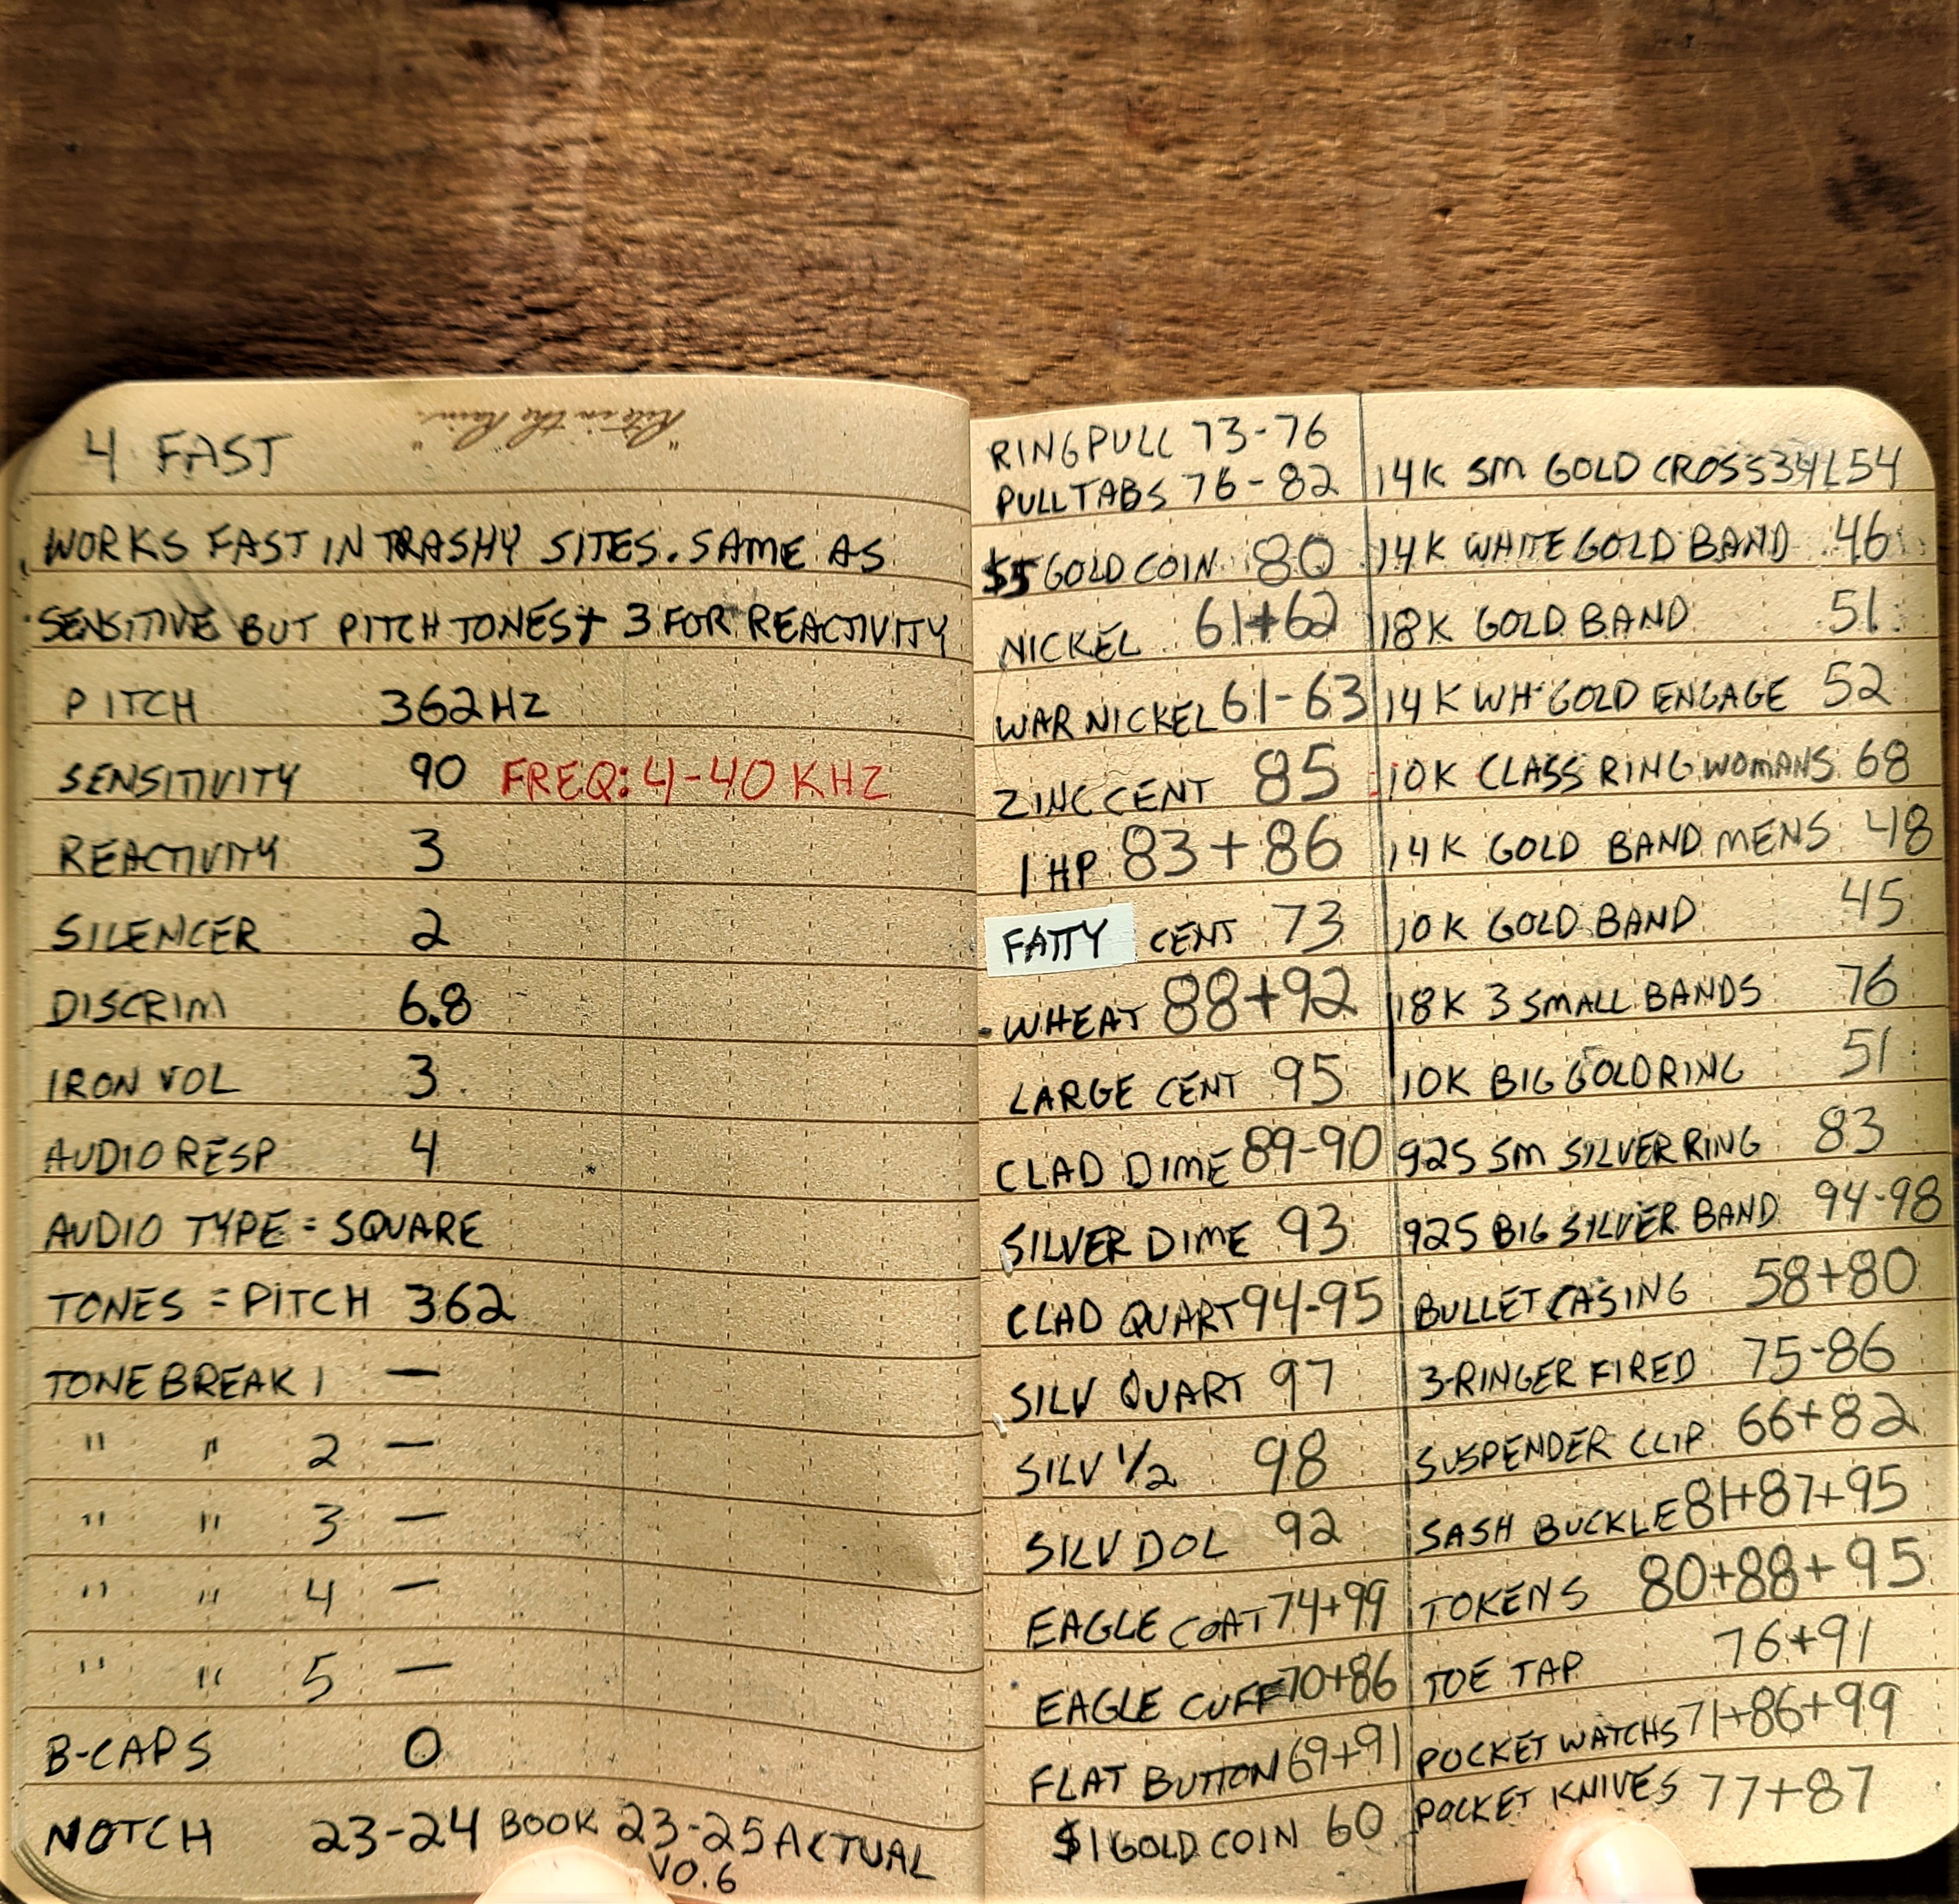 "Rite in the Rain"
4 FAST
WORKS FAST IN TRASHY SITES. SAME AS
SENSITIVE BUT PITCH TONES + 3 FOR REACTIVITY
PITCH 362HZ
SENSITIVITY 90 FREQ: 4-40 KHZ
REACTIVITY 3
SILENCER 2
DISCRIM 6.8
IRON VOL 3
AUDIO RESP 4
AUDIO TYPE = SQUARE
TONES = PITCH 362
TONE BREAK 1 —
" " 2 —
" " 3 —
" " 4 —
" " 5 —
B-CAPS 0
NOTCH 23-24 BOOK 23-25 ACTUAL
V0.6
RING PULL 73-76
PULLTABS 76-82
$5 GOLD COIN 80
NICKEL 61+62
WAR NICKEL 61-63
ZINC CENT 85
1 HP 83+86
FATTY CENT 73
WHEAT 88+92
LARGE CENT 95
CLAD DIME 89-90
SILVER DIME 93
CLAD QUART 94-95
SILV QUART 97
SILV 1/2 98
SILV DOL 92
EAGLE COAT 74+99
EAGLE CUFF 70+86
FLAT BUTTON 69+91
$1 GOLD COIN 60
14K SM GOLD CROSS 54
14K WHITE GOLD BAND 46
18K GOLD BAND 51
14K WH GOLD ENGAGE 52
10K CLASS RING WOMANS 68
14K GOLD BAND MENS 48
10K GOLD BAND 45
18K 3 SMALL BANDS 76
10K BIG GOLD RING 51
925 SM SILVER RING 83
925 BIG SILVER BAND 94-98
BULLET CASING 58+80
3-RINGER FIRED 75-86
SUSPENDER CLIP 66+82
SASH BUCKLE 81+87+95
TOKENS 80+88+95
TOE TAP 76+91
POCKET WATCHS 71+86+99
POCKET KNIVES 77+87